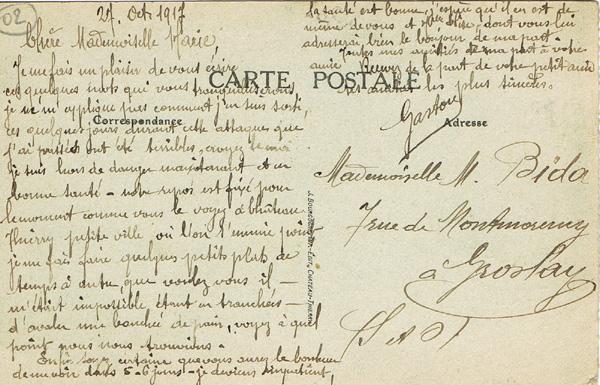 02
27. Oct. 1917
Chère Mademoiselle Marie,
Je me fais un plaisir de vous écrire
ces quelques mots qui vous tranquilliserons,
je ne m'explique pas comment j'en suis sorti,
ces quelques jours durant cette attaques que
j'ai passées ont été terribles, croyez le moi
je suis hors de danger maintenant et en
bonne santé - notre repos est fixé pour
le moment comme vous le voyez à Château
Thierry petite ville où l'on s'ennuie point
je me fais faire quelques petits plats de
temps à autre, que voulez vous il —
m'était impossible étant en tranchées —
d'avaler une bouchée de pain, voyez à quel
point nous nous trouvions —
Enfin soyez certaine que vous aurez le bonheur
de me voir dans 5-6 jours - je deviens impatient,
la santé est bonne, j'espère qu'il en est de
même de vous et dont vous lui
adresserez bien le bonjour de ma part -
Toutes mes amitiés de ma part à votre
amie Recevez de la part de votre petit amie
les plus sincères.
Gaston
CARTE POSTALE
Correspondance
Adresse
Mademoiselle M. Bida
7 rue de Montmorency
à Groslay
(S et O)